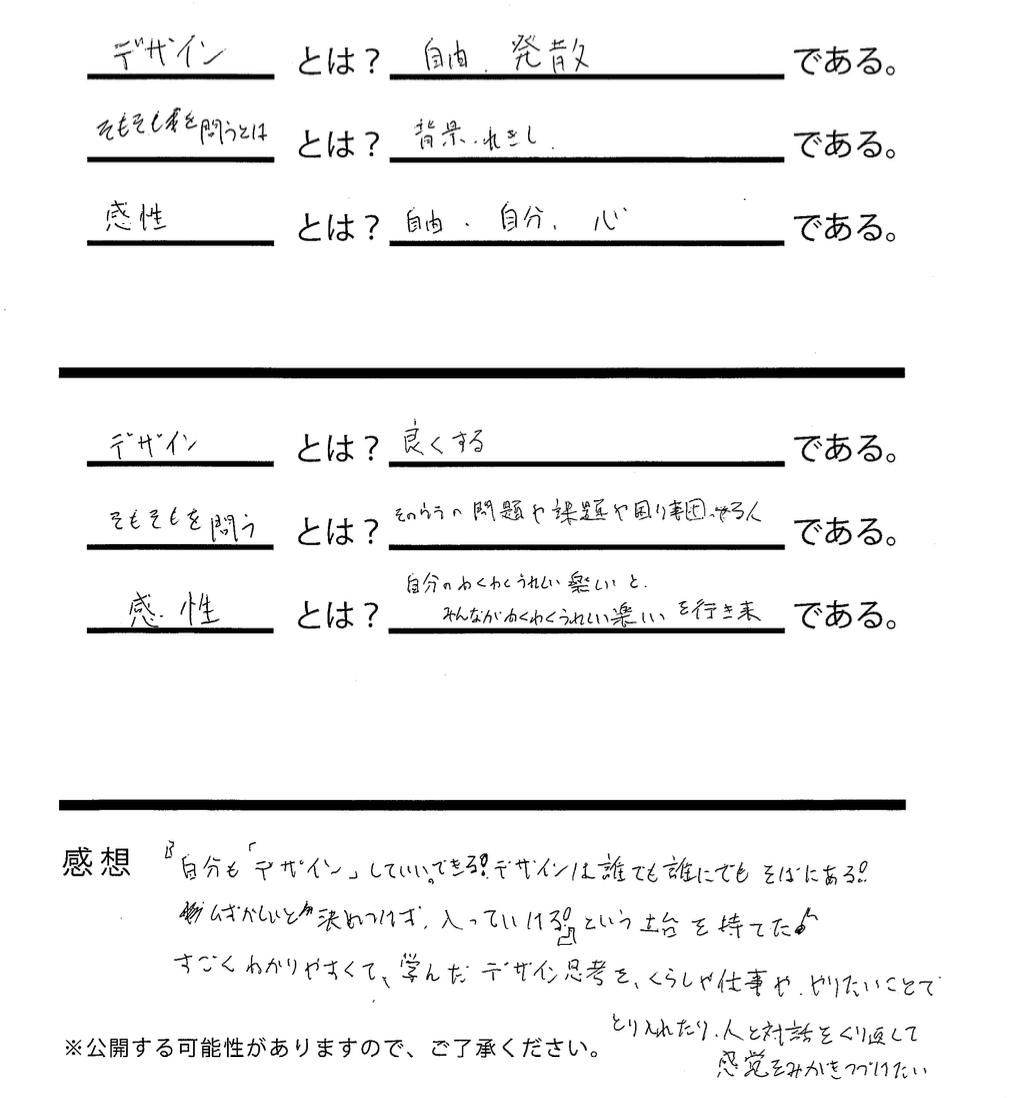 デザイン とは？ 自由．発散 である。
そもそも を問うとは とは？ 背景．れきし． である。
感性 とは？ 自由．自分．心 である。
デザイン とは？ 良くする である。
そもそもを問う とは？ 問題や課題や困り事 人 である。
感性 とは？ 自分のわくわくうれしい楽しいと．
みんながわくわくうれしい楽しいを行き来 である。
感想 『自分も「デザイン」していい。できる!デザインは誰でも誰にでもそばにある!
むずかしいと決めつけず．入っていける!』という土台を持てた♪
すごくわかりやすくて、学んだデザイン思考を、くらしや仕事や．やりたいことで
とり入れたり．人と対話をくり返して
※公開する可能性がありますので、ご了承ください。
感覚をみがきつづけたい